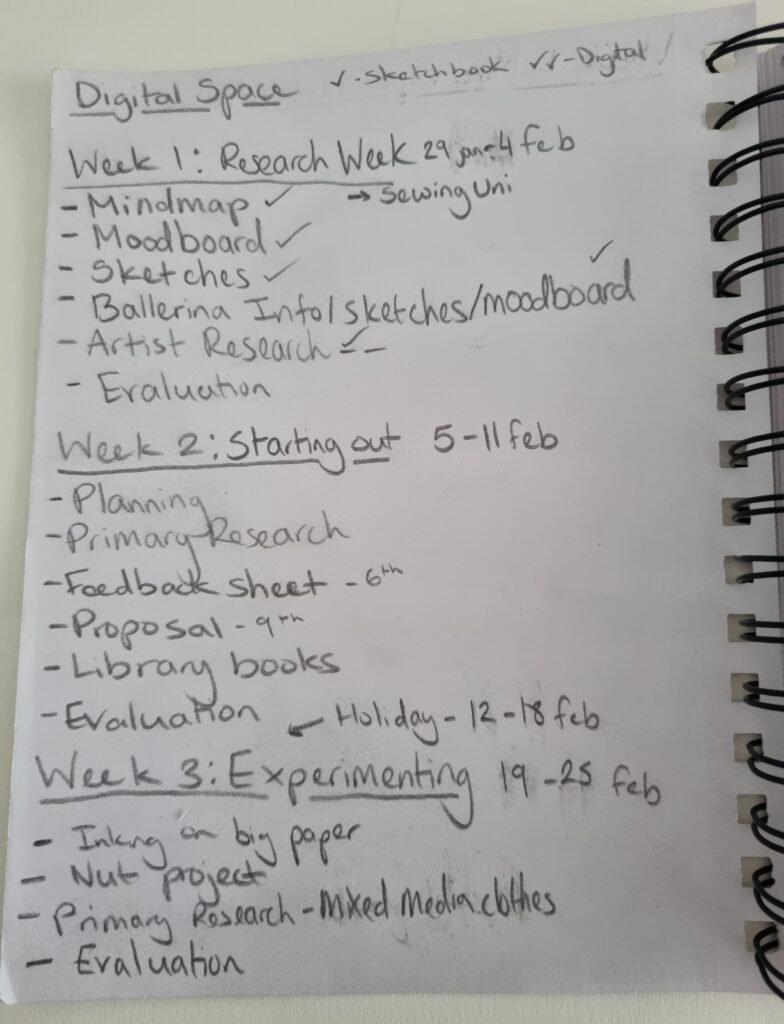 Digital Space ✓-Sketchbook ✓✓-Digital
Week 1: Research Week 29 jan-4 feb
- Mindmap ✓ → Sewing Uni
- Moodboard ✓
- Sketches ✓
- Ballerina Info/sketches/moodboard ✓
- Artist Research ✓
- Evaluation
Week 2: Starting out 5-11 feb
- Planning
- Primary Research
- Feedback sheet - 6th
- Proposal - 9th
- Library books
- Evaluation ↙ Holiday - 12-18 feb
Week 3: Experimenting 19-25 feb
- Inking on big paper
- Nut project
- Primary Research - Mixed Media clothes
- Evaluation